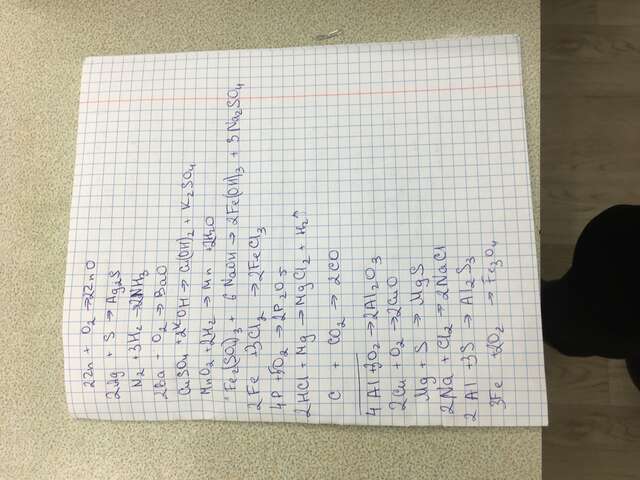 2Zn + O₂ → 2ZnO
2Ag + S → Ag₂S
N₂ + 3H₂ → 2NH₃
2Ba + O₂ → BaO
CuSO₄ + 2KOH → Cu(OH)₂ + K₂SO₄
MnO₂ + 2H₂ → Mn + 2H₂O
Fe₂(SO₄)₃ + 6NaOH → 2Fe(OH)₃ + 3Na₂SO₄
2Fe + 3Cl₂ → 2FeCl₃
4P + 5O₂ → 2P₂O₅
2HCl + Mg → MgCl₂ + H₂↑
C + CO₂ → 2CO
4Al + 3O₂ → 2Al₂O₃
2Cu + O₂ → 2CuO
Mg + S → MgS
2Na + Cl₂ → 2NaCl
2Al + 3S → Al₂S₃
3Fe + 2O₂ → Fe₃O₄